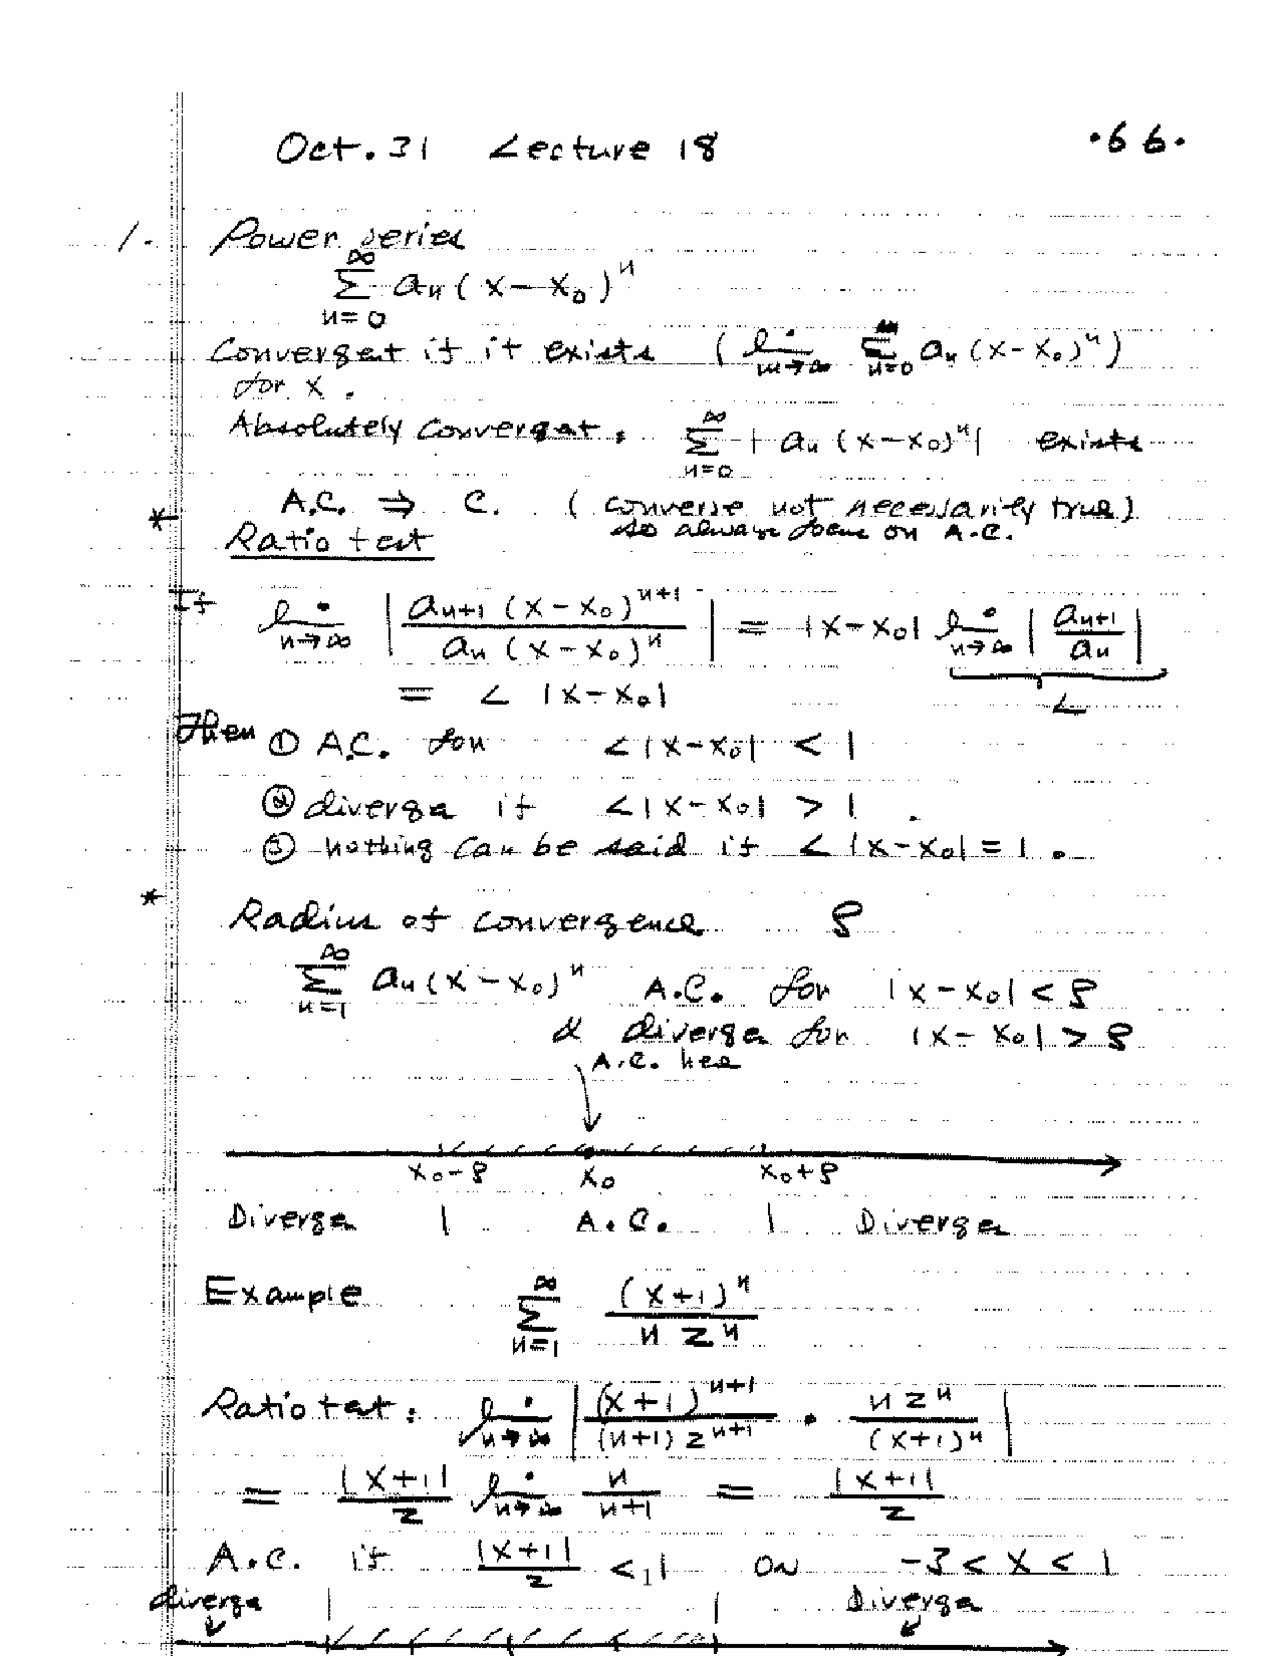 Oct. 31 Lecture 18 ·66·
1. Power series
∑_{n=0}^{∞} a_n (x-x_0)^n
Convergent if it exists (lim_{m→∞} ∑_{n=0}^{m} a_n (x-x_0)^n)
for x.
Absolutely Convergent: ∑_{n=0}^{∞} |a_n (x-x_0)^n| exists
A.C. ⇒ C. (converse not necessarily true)
* so always focus on A.C.
Ratio test
If lim_{n→∞} | a_{n+1} (x-x_0)^{n+1} / a_n (x-x_0)^n | = |x-x_0| lim_{n→∞} | a_{n+1} / a_n |
= L |x-x_0| L
Then ① A.C. for L|x-x_0| < 1
② diverge if L|x-x_0| > 1.
③ nothing can be said if L |x-x_0| = 1.
* Radius of convergence ρ
∑_{n=1}^{∞} a_n (x-x_0)^n A.C. for |x-x_0| < ρ
& diverge for |x-x_0| > ρ
A.C. here
x_0-ρ x_0 x_0+ρ
Diverge | A.C. | Diverge
Example ∑_{n=1}^{∞} (x+1)^n / n 2^n
Ratio test: lim_{n→∞} | (x+1)^{n+1} / (n+1) 2^{n+1} · n 2^n / (x+1)^n |
= |x+1| / 2 lim_{n→∞} n / n+1 = |x+1| / 2
A.C. if |x+1| / 2 < 1 or -3 < x < 1
diverge Diverge